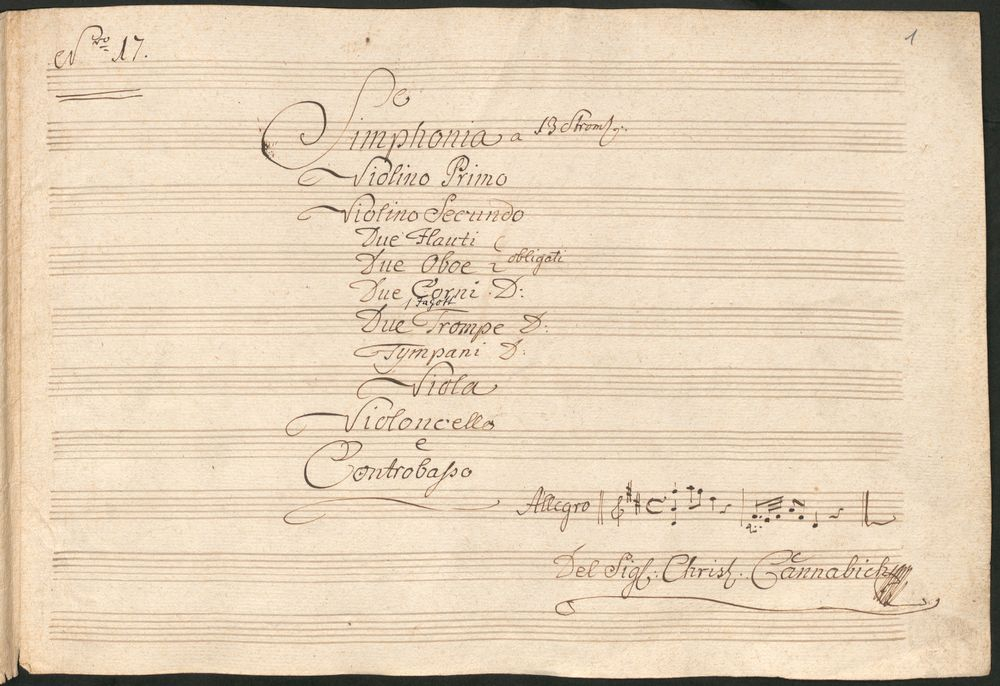 N.ro 17.
1
Simphonia a 13 Strom:
Violino Primo
Violino Secundo
Due Flauti
Due Oboe obligati
Due Corni D:
1 Fagott
Due Trompe D:
Tympani D:
Viola
Violoncello
e
Controbasso
Allegro
Del Sig: Christ. Cannabich